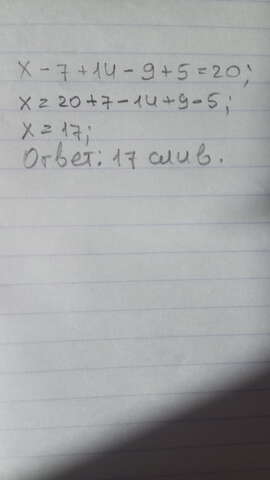 x - 7 + 14 - 9 + 5 = 20;
x = 20 + 7 - 14 + 9 - 5;
x = 17;
Ответ: 17 слив.